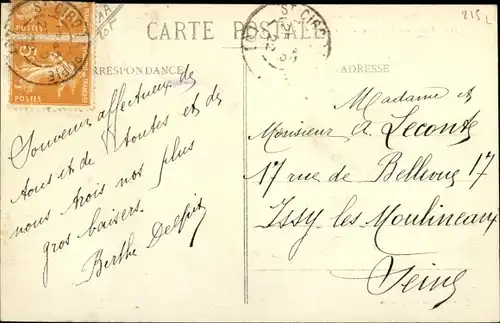 CARTE POSTALE
CORRESPONDANCE
ADRESSE
215
POSTES
POSTES
ST CIRQ
ST CIRQ
Souvenir affectueux de
tous et de toutes et de
nous trois nos plus
gros baisers.
Berthe Delpit
Madame et
Monsieur A. Leconte
17 rue de Bellevue 17
Issy-les-Moulineaux
Seine